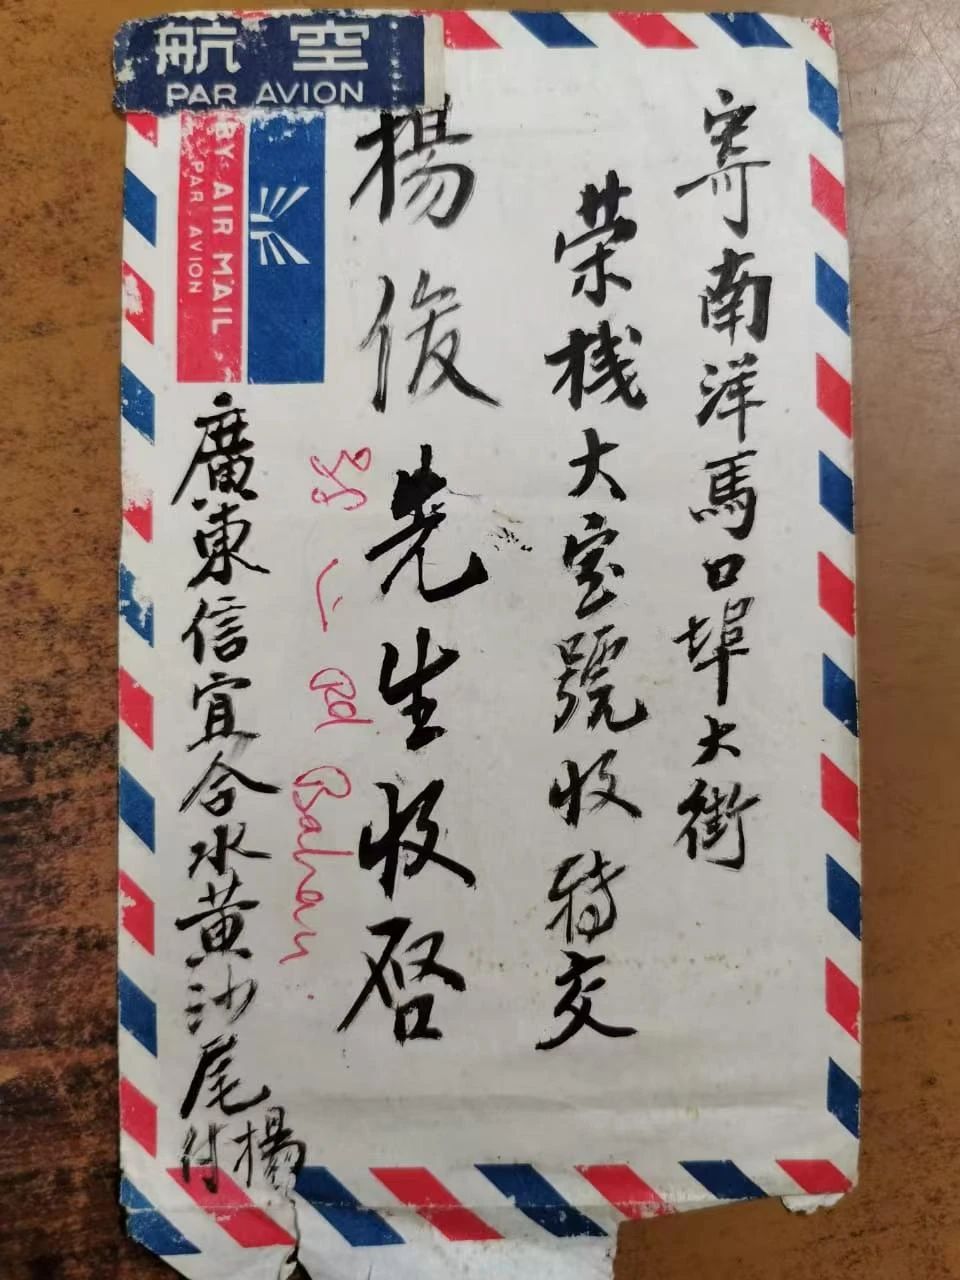 航空
PAR AVION
BY AIR MAIL
PAR AVION
寄南洋馬口埠大街
荣栈大宝號收轉交
楊俊先生收啓
Rd
廣東信宜合水黄沙尾
楊付